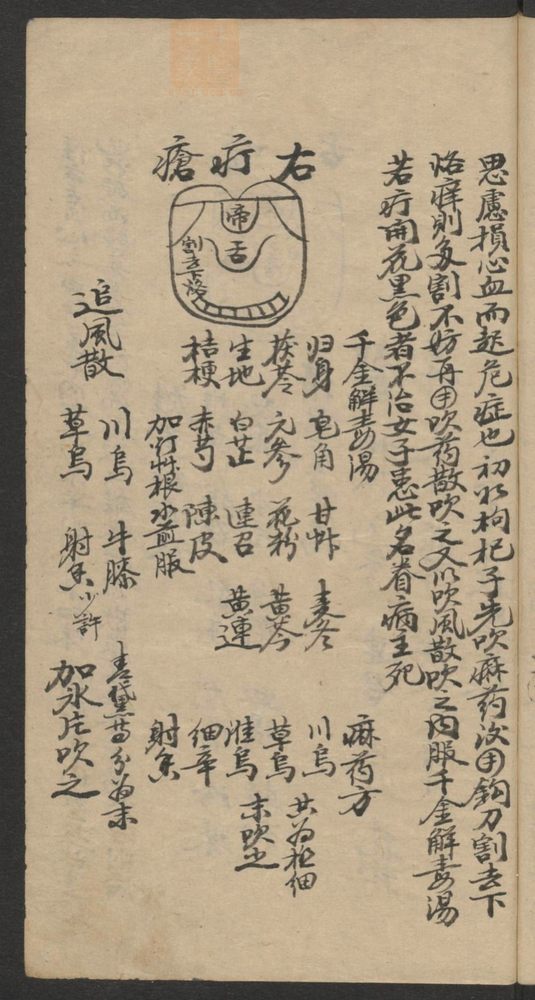 思慮損心血而起危症也初如枸杞子先吹麻药次用鈎刀割去下
烙痒則多割不妨再用吹药散吹之又以吹風散吹之内服千金解毒湯
若疔開花黑色者不治女子患此名眷病主死
右疔瘡
帝
舌
割去下烙
千金解毒湯
归身 皂角 甘艸 麦冬
茯苓 元参 花粉 黄芩
生地 白芷 連召 黄連
桔梗 赤芍 陳皮
加灯艸根水煎服
麻药方
川烏
草烏
淮烏
細辛
射香
共为极细
末吹之
追風散
川烏 牛膝
草烏 射香少許
青黛等分为末
加冰片吹之